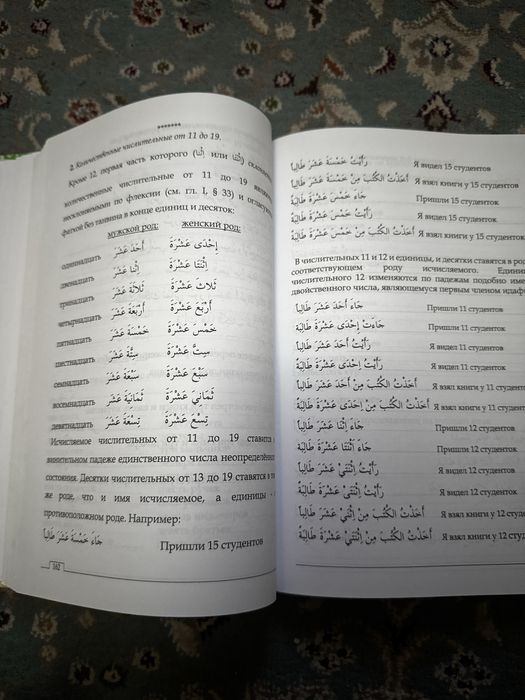 *******
2. Количественные числительные от 11 до 19.
Кроме 12, первая часть которого (اِثْنَا или اِثْنَتَا)
количественные числительные от 11 до 19
несклоняемыми по флексии (см. гл. I, § 33) и
фатхой без танвина в конце единиц и десяток:
мужской род: женский род:
одиннадцать أَحَدَ عَشَرَ إِحْدَى عَشْرَةَ
двенадцать اِثْنَا عَشَرَ اِثْنَتَا عَشْرَةَ
тринадцать ثَلَاثَةَ عَشَرَ ثَلاثَ عَشْرَةَ
четырнадцать أَرْبَعَةَ عَشَرَ أَرْبَعَ عَشْرَةَ
пятнадцать خَمْسَةَ عَشَرَ خَمْسَ عَشْرَةَ
шестнадцать سِتَّةَ عَشَرَ سِتَّ عَشْرَةَ
семнадцать سَبْعَةَ عَشَرَ سَبْعَ عَشْرَةَ
восемнадцать ثَمَانِيَةَ عَشَرَ ثَمَانِيَ عَشْرَةَ
девятнадцать تِسْعَةَ عَشَرَ تِسْعَ عَشْرَةَ
Исчисляемое числительных от 11 до 19 ставится
винительном падеже единственного числа
состояния. Десятки числительных от 13 до 19 ставятся в
же роде, что и имя исчисляемое, а единицы -
противоположном роде. Например:
جَاءَ خَمْسَةَ عَشَرَ طَالِباً Пришли 15 студентов
162
رَأَيْتُ خَمْسَةَ عَشَرَ طَالِباً Я видел 15 студентов
أَخَذْتُ الكُتُبَ مِنْ خَمْسَةَ عَشَرَ طَالِباً Я взял книги у 15 студентов
جَاءَ خَمْسَ عَشْرَةَ طَالِبَةً Пришли 15 студенток
رَأَيْتُ خَمْسَ عَشْرَةَ طَالِبَةً Я видел 15 студенток
أَخَذْتُ الكُتُبَ مِنْ خَمْسَ عَشْرَةَ طَالِبَةً Я взял книги у 15
В числительных 11 и 12 и единицы, и десятки ставятся в
соответствующем роду исчисляемого.
числительного 12 изменяются по падежам подобно
двойственного числа, являющемуся первым членом
جَاءَ أَحَدَ عَشَرَ طَالِباً Пришли 11 студентов
جَاءَتْ إِحْدَى عَشْرَةَ طَالِبَةً Пришли 11 студенток
رَأَيْتُ أَحَدَ عَشَرَ طَالِباً Я видел 11 студентов
رَأَيْتُ إِحْدَى عَشْرَةَ طَالِبَةً Я видел 11 студенток
أَخَذْتُ الكُتُبَ مِنْ أَحَدَ عَشَرَ طَالِباً Я взял книги у 11
أَخَذْتُ الكُتُبَ مِنْ إِحْدَى عَشْرَةَ طَالِبَةً Я взял книги у 11
جَاءَ اِثْنَا عَشَرَ طَالِباً Пришли 12 студентов
جَاءَ اثْنَتَا عَشْرَةَ طَالِبَةً Пришли 12 студенток
رَأَيْتُ اِثْنَيْ عَشَرَ طَالِباً Я видел 12 студентов
رَأَيْتُ اِثْنَتَيْ عَشْرَةَ طَالِبَةً Я видел 12 студенток
أَخَذْتُ الكُتُبَ مِنْ اِثْنَيْ عَشَرَ طَالِباً Я взял книги у 12
أَخَذْتُ الكُتُبَ مِنْ اِثْنَتَيْ عَشْرَةَ طَالِبَةً Я взял книги у 12